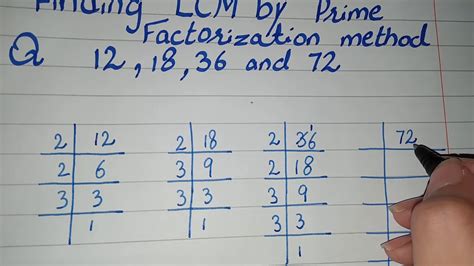 Finding LCM by Prime
Factorization method
Q 12, 18, 36 and 72
2 12 2 18 2 36 72
2 6 3 9 2 18
3 3 3 3 3 9
1 1 3 3
1